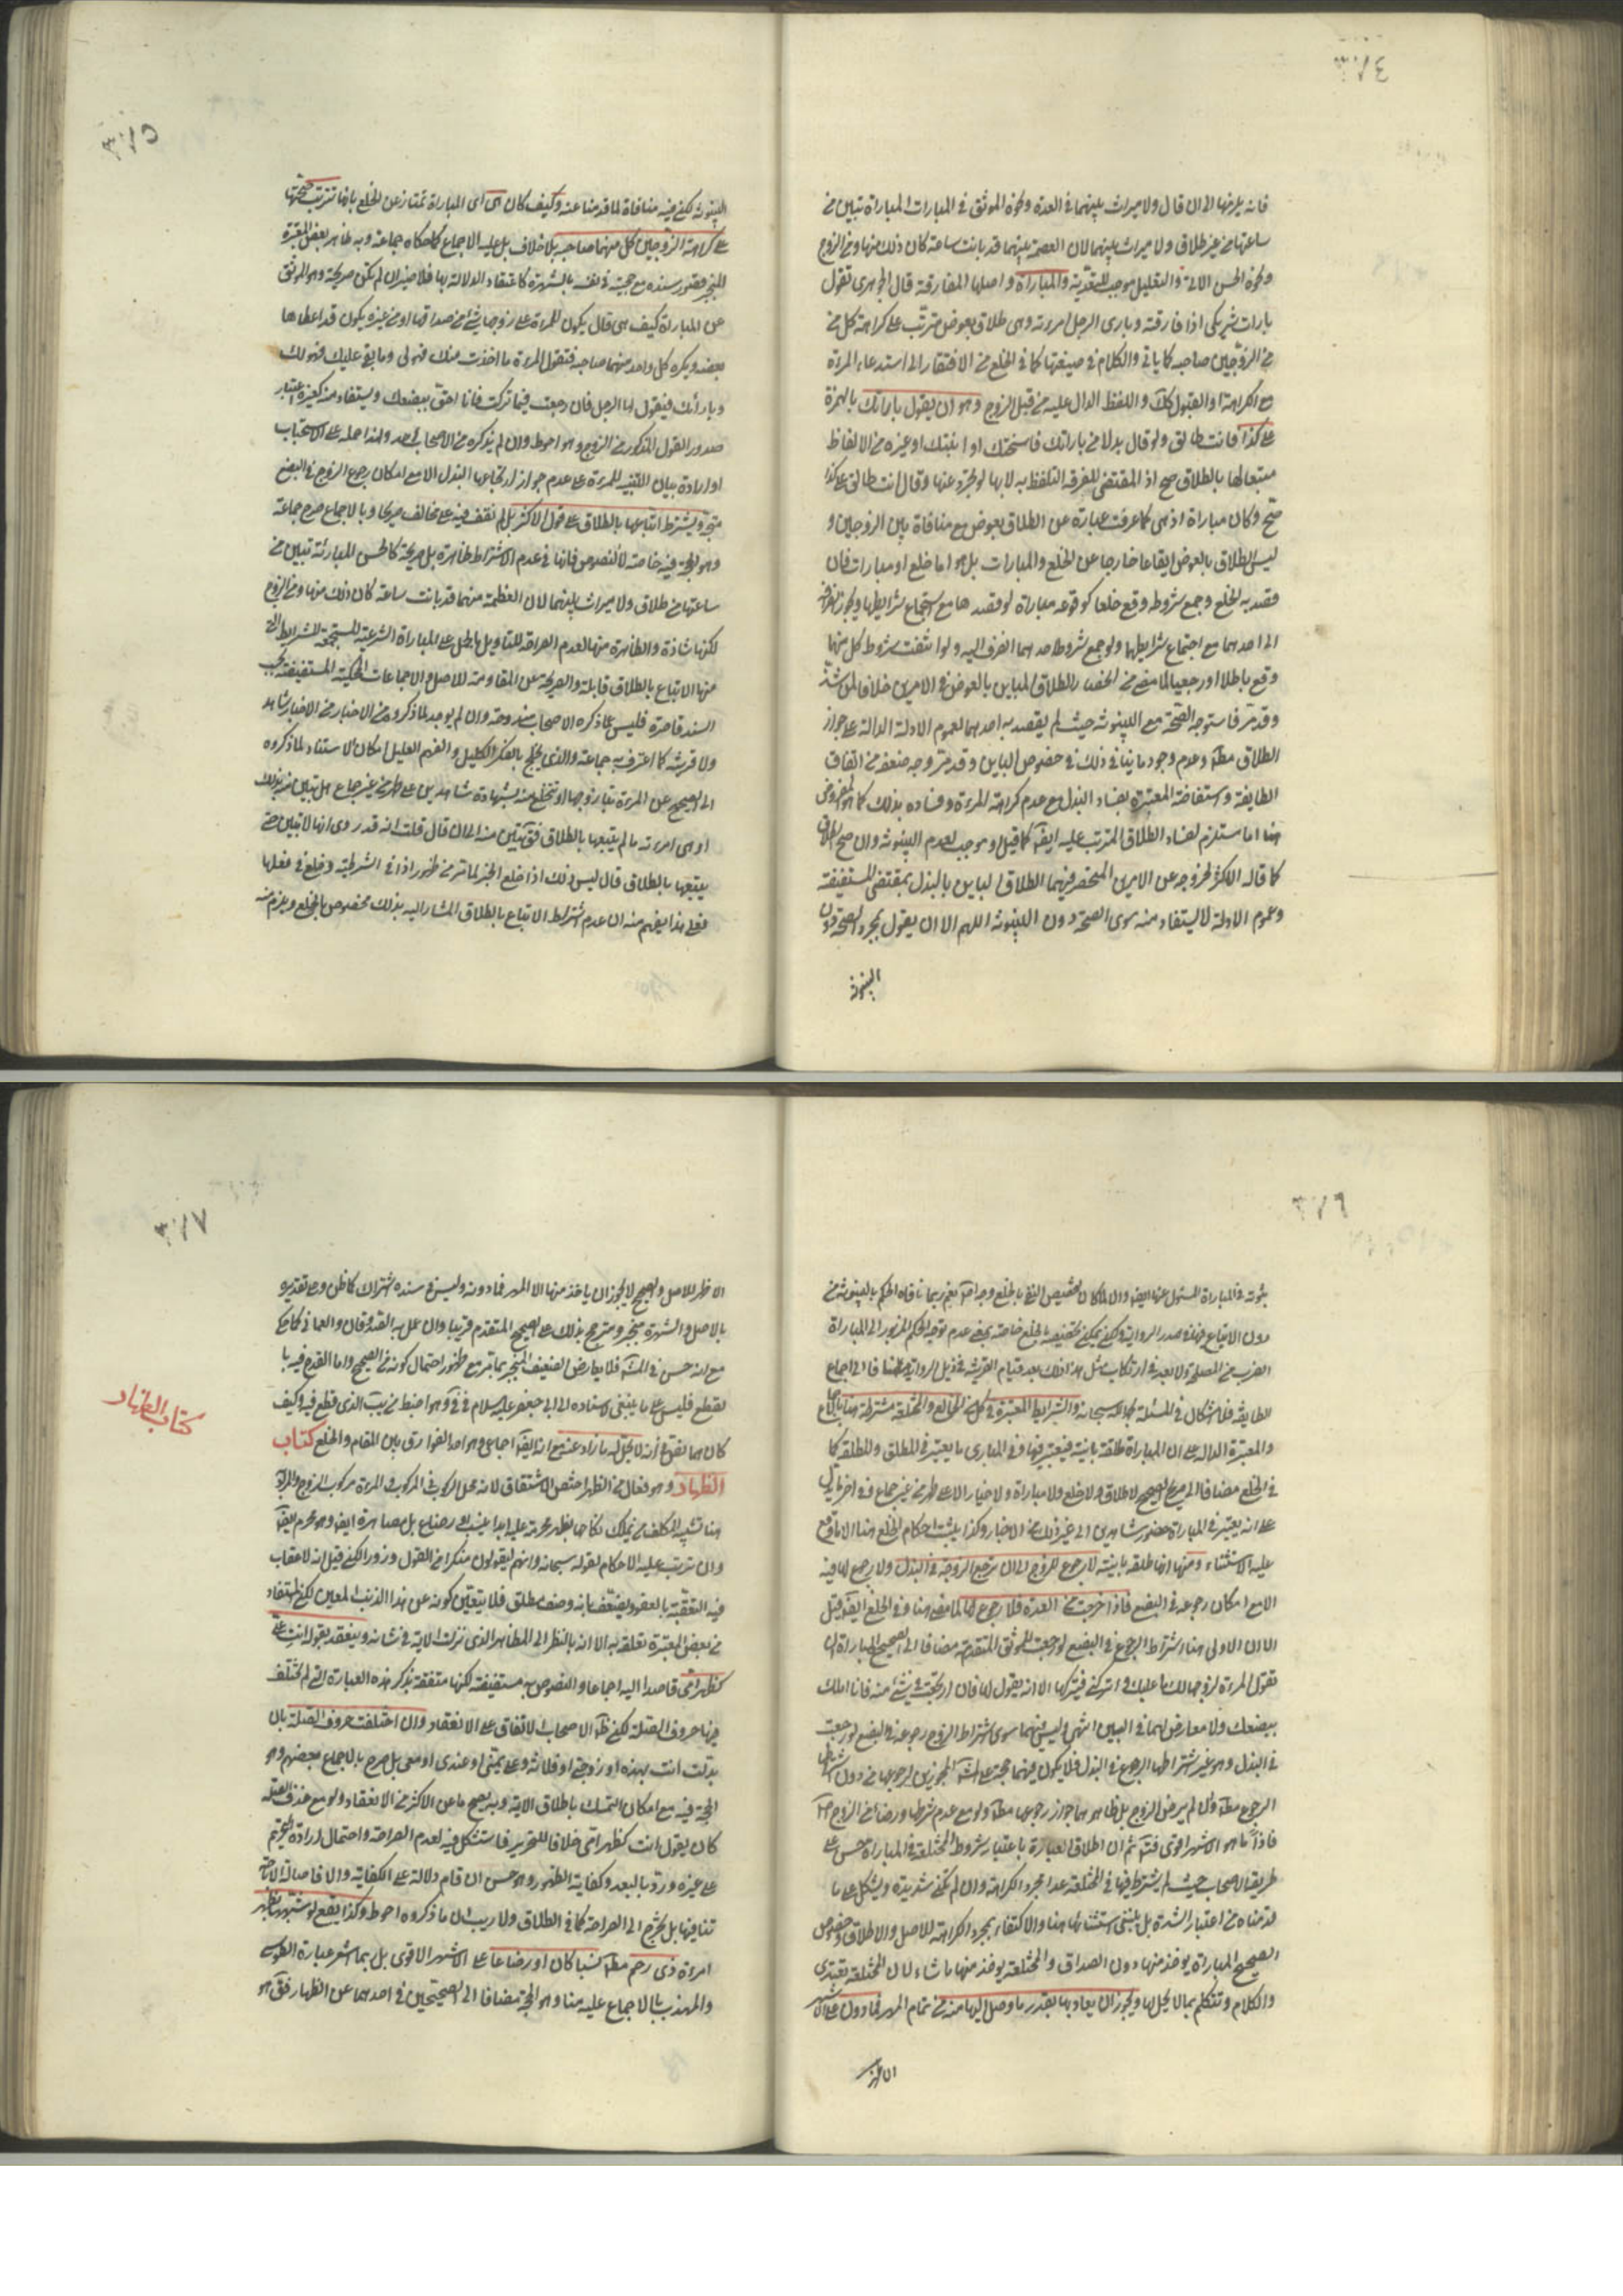 ٣٧٤
فانه يلزمها الا ان قال ولا ميراث بينهما في العدة ونحوه الموثق في المبارات المباراة تبين من
ساعتها من غير طلاق ولا ميراث بينهما لان العصمة بينهما قد بانت ساعة كان ذلك منها ومن الزوج
ونحوه الحسن الاتي والتعليل موجب للتعدية والمباراة واصلها المفارقة قال الجوهري تقول
بارات شريكي اذا فارقته وبارى الرجل امرءته وهي طلاق بعوض مترتب على كراهة كل من
من الزوجين صاحبه كما ياتي والكلام في صيغتها كما في الخلع من الافتقار الى استدعاء المرءة
مع الكراهة او القبول كك واللفظ الدال عليه من قبل الزوج وهو ان يقول باراتك بالهمزة
على كذا فانت طالق ولو قال بدلا من باراتك فاسختك او ابنتك او غيره من الالفاظ
متبعا لها بالطلاق صح اذ المقتضى للفرقة التلفظ به لا بها لو تجرد عنها وقال انت طالق على كذا
صح وكان مباراة اذ هي كما عرفت عبارة عن الطلاق بعوض مع منافاة بين الزوجين و
ليس الطلاق بالعوض ايقاعا خارجا عن الخلع والمبارات بل هو اما خلع او مبارات فان
قصد به الخلع وجمع شروطه وقع خلعا كوقوعه مباراة لو قصدها مع استجماع شرايطها ويجوز
الى احدهما مع اجتماع شرايطهما ولو جمع شروط احدهما انصرف اليه ولو انتفت شروط كل منهما
وقع باطلا او رجعيا لما مضى من انحصار الطلاق المباين بالعوض في الامرين خلافا لمن شذ
وقد مر فاستوجه الصحة مع البينونة حيث لم يقصد به احدهما لعموم الادلة الدالة على جواز
الطلاق مطلقا وعدم وجود ما ينافي ذلك في خصوص الباين وقد مر وجه ضعفه من اتفاق
الطايفة واستفاضة المعتبرة بفساد البذل مع عدم كراهة المرءة وفساده بذلك كما هو المفروض
هنا اما مستلزم لفساد الطلاق المترتب عليه ايضا كما قيل وموجب لعدم البينونة وان صح الطلاق
كما قاله الاكثر لخروجه عن الامرين المنحصر فيهما الطلاق الباين بالبذل بمقتضى المستفيضة
وعموم الادلة لا يستفاد منه سوى الصحة دون البينونة اللهم الا ان يقول بمجرد الصحة دون
البينونة
٣٧٥
البينونة لكن فيه منافاة لما قدمنا عنه وكيف كان هي اي المباراة تمتاز عن الخلع بانها تترتب صحتها
على كراهة الزوجين كل منهما صاحبه بلا خلاف بل عليه الاجماع كما حكاه جماعة وبه ظاهر بعض المعتبرة
المنجبر قصور سنده مع حجيته في نفسه بالشهرة كاعتقاد الدلالة بها فلا ضير ان لم يكن صريحة وهو الموثق
عن المباراة كيف هي قال يكون للمرءة على زوجها شيء من صداقها او من غيره يكون قد اعطاها
بعضه ويكره كل واحد منهما صاحبه فتقول المرءة ما اخذت منك فهو لي وما بقي عليك فهو لك
وبارأتك فيقول لها الرجل فان رجعت فيما تركت فانا احق ببضعك ويستفاد منه كغيره اعتبار
صدور القول المذكور من الزوج وهو احوط وان لم يذكره من الاصحاب احد ولهذا حمله على الاستحباب
او ارادة بيان التنبيه للمرءة على عدم جواز ارتجاعها البذل الا مع امكان رجوع الزوج في البضع
متجه ويشترط اتباعها بالطلاق على قول الاكثر بل لم نقف فيه على مخالف صريحا وبالاجماع صرح جماعة
وهو الحجة فيه خاصة لا النصوص فانها في عدم الاشتراط ظاهرة بل صريحة كالحسن المبارئة تبين من
ساعتها من طلاق ولا ميراث بينهما لان العظمة منهما قد بانت ساعة كان ذلك منها ومن الزوج
لكنها شاذة والظاهرة منها لعدم الصراحة للتاويل بالحمل على المباراة الشرعية المستجمعة للشرايط التي
منها الاتباع بالطلاق قابلة والصريحة عن المقاومة للاصل والاجماعات المحكية المستفيضة بحسب
السند قاصرة فليس عما ذكره الاصحاب مندوحة وان لم يوجد لما ذكروه من الاخبار شاهد
ولا قرينة كما اعترف به جماعة والذي يختلج بالفكر الكليل والفهم العليل امكان الاستناد لما ذكروه
الى الصحيح عن المرءة تبارء زوجها او تختلع منه بشهادة شاهدين على طهر من غير جماع هل تبين منه بذلك
او هي امرءته ما لم يتبعها بالطلاق فقال تبين منه الى ان قال قلت انه قد روى انها لا تبين حتى
يتبعها بالطلاق قال ليس ذلك اذا خلع الخبر لما مر من ظهور اذا في الشرطية وخلع في فعلها
فعلى هذا يفهم منه ان عدم اشتراط الاتباع بالطلاق المشار اليه بذلك مخصوص بالخلع ويلزم منه
٣٧٦
ثبوته في المباراة المسئول عنها ايضا والا لما كان لتخصيص النفي بالخلع وجه اصلا نعم ربما نافاه الحكم بالبينونة من
دون الاتباع فيهما في صدر الرواية ولكن يمكن تخصيصه بالخلع خاصة بمعنى عدم توجه الحكم المزبور الى المباراة
لضرب من المصلحة ولا بعد في ارتكاب مثل هذا فلك بعد قيام القرينة في ذيل الرواية مضافا الى اجماع
الطايفة فلا اشكال في المسئلة بحمد الله سبحانه والشرايط المعتبرة في كل من الخالع والمختلعة مشترطة هنا باجماع
والمعتبرة الدالة على ان المباراة طلقة باينة فيعتبر فيها وفي المباري ما يعتبر في المطلق والمطلقة كما
في الخلع مضافا الى صريح الصحيح لا طلاق ولا خلع ولا مباراة ولا خيار الا على طهر من غير جماع وفي اخر ما يدل
على انه يعتبر في المباراة حضور شاهدين الى غير ذلك من الاخبار وكذا يثبت احكام الخلع هنا الا ما وقع
عليه الاستثناء ومنها انها طلقة باينة لا رجوع للزوج الا ان ترجع الزوجة في البذل ولا رجوع لها فيه
الا مع امكان رجوعه في البضع فاذا خرجت من العدة فلا رجوع لها لما مضى هنا وفي الخلع ايضا قيل
الا ان الاولى هنا اشتراط الرجوع في البضع لو رجعت للموثق المتقدمة مضافا الى الصحيح المباراة ان
تقول المرءة لزوجها لك ما عليك واتركني فيتركها الا انه يقول لها فان ارتجعت في شيء منه فانا املك
ببضعك ولا معارض لهما في البين انتهى وليس فيهما سوى اشتراط الزوج رجوعه في البضع لو رجعت
في البذل وهو غير اشتراطها الرجوع في البذل فلا يكون فيهما حجة على
الرجوع مطلقا وان لم يرض الزوج بل ظاهرهما جواز رجوعها مطلقا ولو مع عدم شرطها ورضا من الزوج
فاذا ما هو الاشهر اقوى فتأمل ثم ان اطلاق العبارة باعتبار شروط المختلعة في المباراة حسن على
طريقة الاصحاب حيث لم يشترط فيها في المختلعة عدا مجرد الكراهة وان لم تكن شديدة ويشكل على ما
قدمناه من اعتبار الشدة بل ينبغي استثنائها هنا والاكتفاء بمجرد الكراهة للاصل والاطلاق وخصوص
الصحيح المباراة يوخذ منها دون الصداق والمختلعة يوخذ منها ما شاء لان المختلعة تعتدي
والكلام وتتكلم بما لا يحل لها ويجوز ان يفاديها بقدر ما وصل اليها منه من تمام المهر فما دون على الاشهر
الاظهر
٣٧٧
الاظهر للاصل والصحيح لا يجوز ان ياخذ منها الا المهر فما دونه وليس في سنده اشتراك كما ظن وعلى تقديره
بالاصل والشهرة منجبر ومترجح بذلك على الصحيح المتقدم قريبا وان عمل به الصدوقان والعماني كما حكي
مع انه حسن في المشهور فلا يعارض الضعيف المنجبر بما مر مع ظهور احتمال كونه من الصحيح واما القدح فيه با
لقطع فليس على ما ينبغي لاسناده الى ابي جعفر عليه السلام في في وهو اضبط من يب الذي قطع فيه وكيف
كان هما اتفقا في أنه لا يحل له ما زاد عنه مع انه ايضا اجماعي وهو احد الفوارق بين المقام والخلع كتاب
الظهار وهو فعال من الظهر اختص الاشتقاق لانه محل الركوب في المركوب والمرءة مركوب الزوج والمراد
هنا تشبيه المكلف من يملك نكاحها بظهر محرمة عليه ابدا بنسب او رضاع بل مصاهرة ايضا وهو محرم ايضا
وان ترتب عليه الاحكام لقوله سبحانه وانهم ليقولون منكرا من القول وزورا لكن قيل انه لا عقاب
فيه لتعقبه بالعفو ويضعف بانه وصف مطلق فلا يتعين كونه عن هذا الذنب المعين لكن المستفاد
من بعض المعتبرة تعلقه به الا انه بالنظر الى المظاهر الذي نزلت الاية في شانه وينعقد بقوله انت علي
كظهر امي قاصدا اليه اجماعا والنصوص به مستفيضة لكنها متفقة بذكر هذه العبارة التي لم تختلف
فيها حروف الصلة لكن ظاهر الاصحاب الاتفاق على الانعقاد وان اختلفت حروف الصلة بان
بدلت انت بهذه او زوجتي او فلانة وعلي بمني او عندي او معي بل صرح بالاجماع بعضهم وهو
الحجة فيه مع امكان التمسك باطلاق الاية وبه يصح ما عن الاكثر من الانعقاد ولو مع حذف الصلة
كان يقول انت كظهر امي خلافا للتحرير فاستشكل فيه لعدم الصراحة واحتمال ارادة التحريم
على غيره ورد بالبعد وكفاية الظهور وهو حسن ان قام دلالة على الكفاية والا فاصالة الاباحة
تنافيها بل يحتاج الى الصراحة كما في الطلاق ولا ريب ان ما ذكروه احوط وكذا يقع لو شبهها بظهر
امرءة ذي رحم مطلقا نسبا كان او رضاعا على الاشهر الاقوى بل ربما اشعر عبارة الطوسي
والمهذب بالاجماع عليه هنا وهو الحجة مضافا الى الصحيحين في احدهما عن الظهار فقال هو
كتاب الظهار